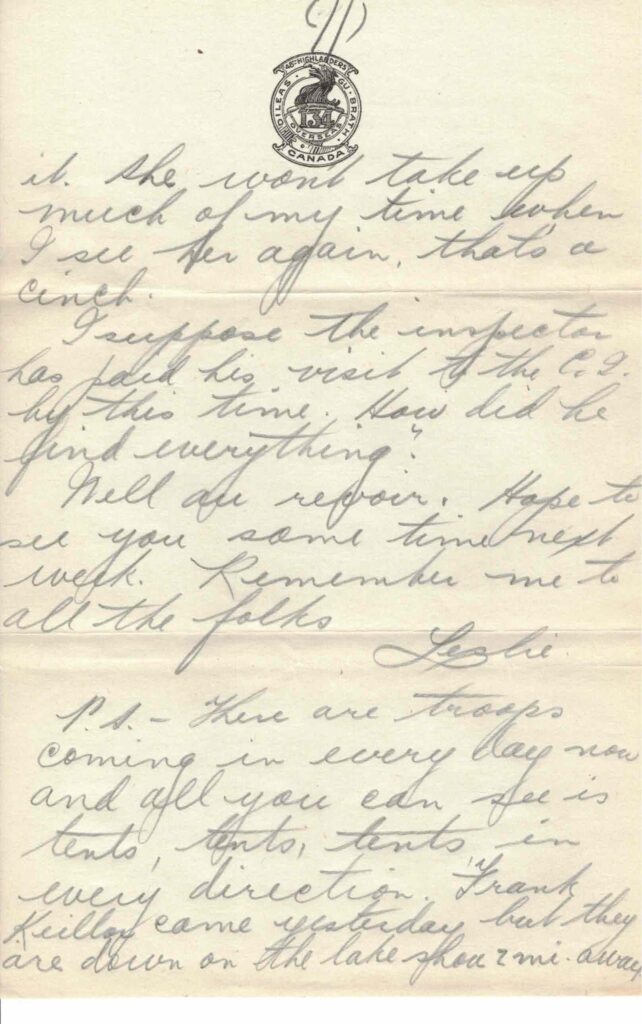 11)
48TH HIGHLANDERS
DILEAS GU BRATH
134
OVERSEAS
CANADA
it. She won't take up
much of my time when
I see her again, that's a
cinch.
I suppose the inspector
has paid his visit to the C.I.
by this time. How did he
find everything".
Well au revoir. Hope to
see you some time next
week. Remember me to
all the folks
Leslie.
P.S. - There are troops
coming in every day now
and all you can see is
tents, tents, tents in
every direction. Frank
came yesterday but they
are down on the lake shore 2 mi. away